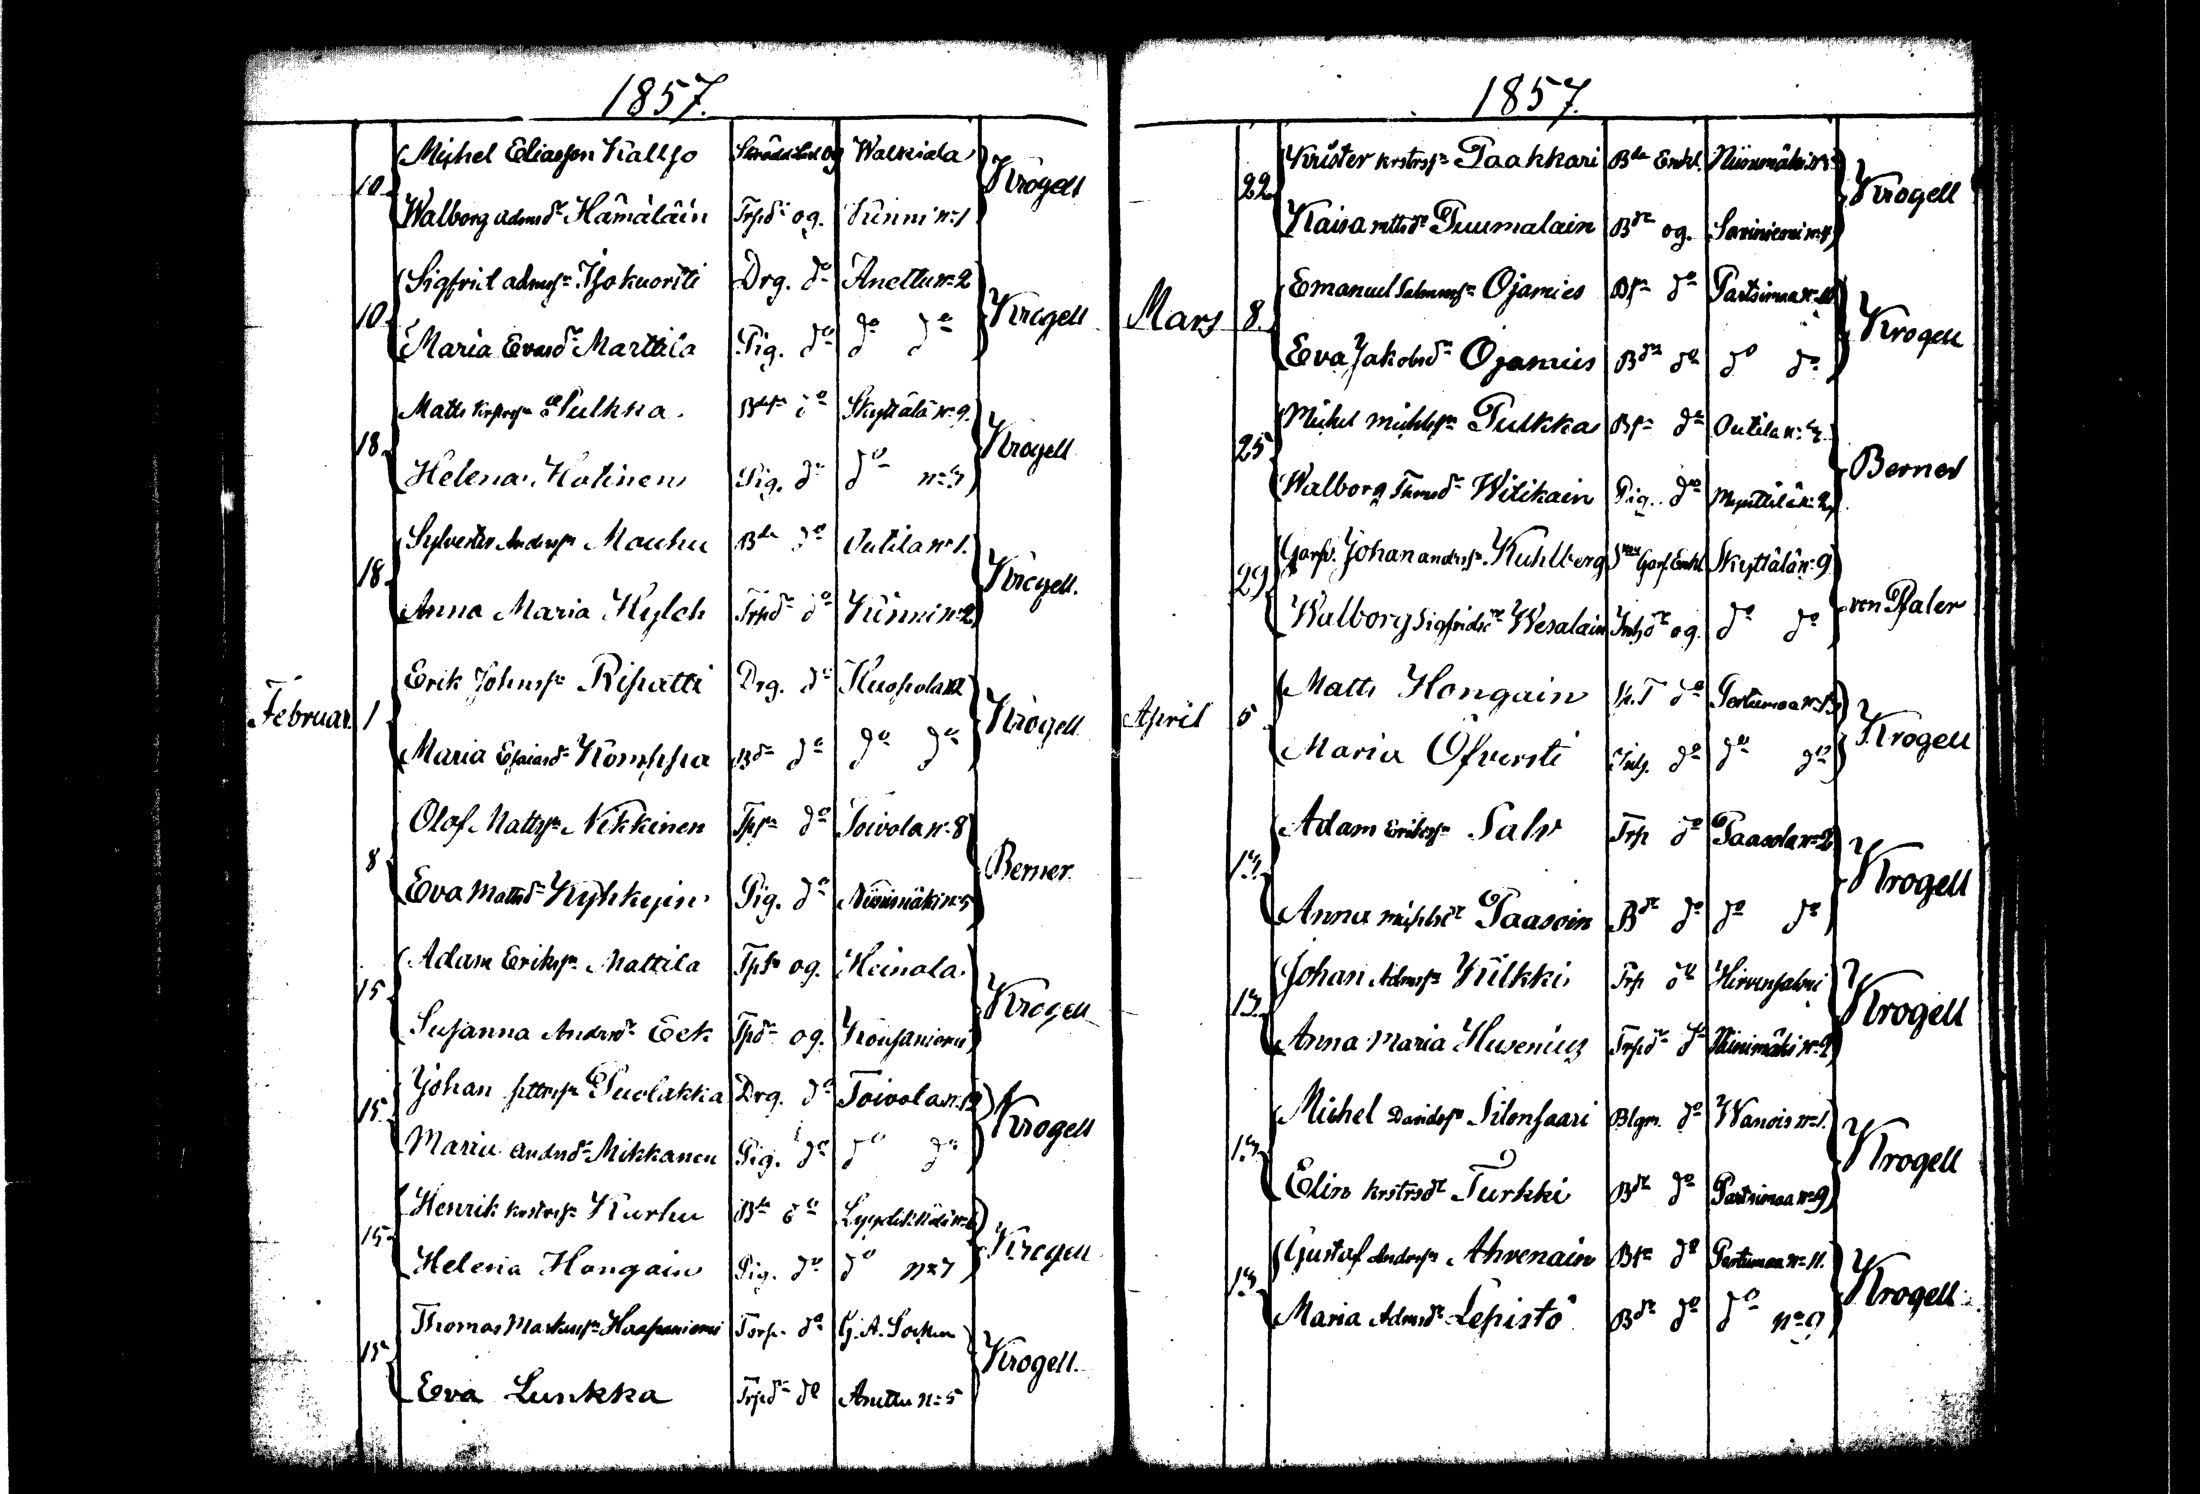 1857.
10. Michel Eliasson Kallio og Walkiala Krogell
Walborg Admsdr Hämäläin Trpdr og. Kinni no 1
10. Sigfrid admssn Isokuortti Drg. do Anettu no 2 Krogell
Maria Evasdr Marttila Pig. do do do
18. Matts Pulkka. do Skyttälä no 9. Krogell
Helena Hotinen Pig. do do no 3
18. Sylvester Anderssn Mauhu Bde do Outila no 1. Krogell.
Anna Maria Kylch Trpdr do Kinni no 2
Februar. 1 Erik Johnssn Ripatti Drg. do Kuopola Krogell
Maria Esaiasdr Komppa Bdr do do do
8 Olof Mattssn Nikkinen Tpsn do Toivola no 8 Berner.
Eva Mattsdr Kyhkyin Pig. do Niinimäki no 5
15 Adam Erikssn Mattila Tpsn og. Heinola. Krogell
Susanna Andrsdr Eek Tpdr og. Kousaniemi
15. Johan pttrssn Puolakka Drg. do Toivola no 19 Krogell
Maria andrsdr Mikkanen Pig. do do do
15 Henrik krstrssn Kurhu Bde do Krogell
Helena Hongain Pig. do do no 7
15 Thomas Markussn Haapaniemi Torp. do G. A. Socken Krogell.
Eva Lunkka Trpdr do Anettu no 5
1857.
22. Krister krstrssn Paakkari Bde Enkl. Niinimäki Krogell
Kaisa mttsdr Puumalain Bdr og. Saviniemi
Mars 8. Emanuel Salmnssn Ojamies Bsn do Partsimaa Krogell
Eva Jakobsdr Ojamies Bdr do do do
25 Michel michlssn Pulkka Bsn do Outila Berner
Walborg Thmsdr Witikain Pig. do Mynttilä no 2
29 Garfv. Johan andrssn Kuhlberg Garf. Enkl Skyttälä no 9 von Pfaler
Walborg Sigfridsdr Wesalain Inhdr og. do do
April 5 Matts Hongain do Pertumaa no 13 Krogell
Maria Öfversti Inh. do do do
13. Adam Erikssn Salv Trp do Paasola no 2 Krogell
Anna michlsdr Paasoin Bdr do do do
13. Johan Admssn Kilkki Trp do Hirvensalmi Krogell
Anna Maria Husenius Trpdr do Niinimäki no 2
13. Michel Davidssn Silonsaari Blgm. do Wanois no 1. Krogell
Elin krstrsdr Turkki Bdr do Partsimaa no 9
13. Gustaf Andrssn Ahvenain Bsn do Pertumaa no 11. Krogell
Maria Admsdr Lepistö Bdr do do no 9